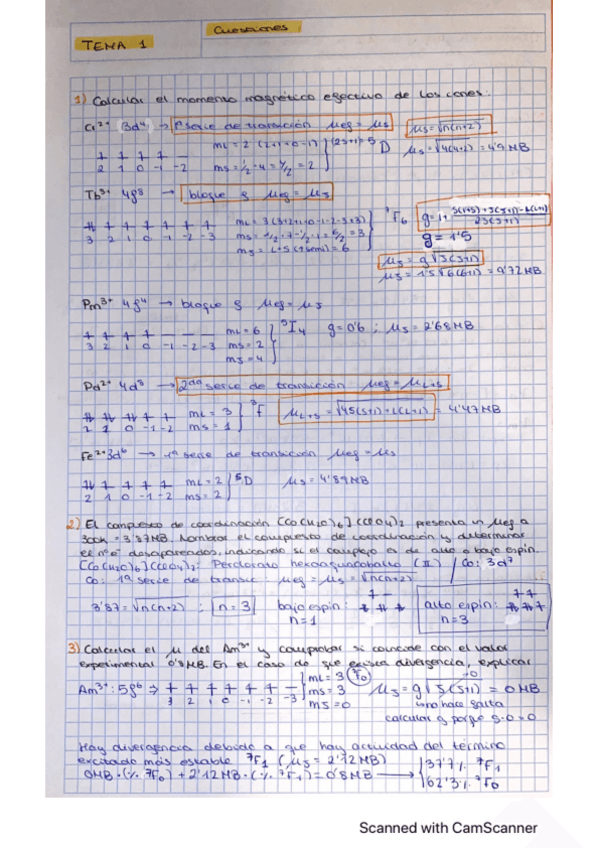 TEMA 1
Cuestiones
1) Calcular el momento magnético efectivo de los iones:
Cr²⁺ 3d⁴ → 1ª serie de transición μef = μs μs = √n(n+2)
mL = 2 (2+1+0-1) (2S+1) = 5 D μs = √4(4+2) = 4'9 MB
2 1 0 -1 -2 ms = 1/2 · 4 = 4/2 = 2
Tb³⁺ 4f⁸ → bloque f μef = μJ
mL = 3 (3+2+1+0-1-2-3+3) ⁷F₆ g = 1 +
3 2 1 0 -1 -2 -3 g = 1'5
mJ = L+S (+semi) = 6
μJ = g√J(J+1)
μJ = 1'5√6(6+1) = 9'72 MB
Pm³⁺ 4f⁴ → bloque f μef = μJ
mL = 6 ⁵I₄ g = 0'6 ; μJ = 2'68 MB
3 2 1 0 -1 -2 -3 ms = 2
mJ = 4
Pd²⁺ 4d⁸ → 2da serie de transición μef = μL+S
mL = 3 ³F μL+S = √4S(S+1)+L(L+1) = 4'47 MB
2 1 0 -1 -2 ms = 1
Fe²⁺ 3d⁶ → 1ª serie de transición μef = μs
mL = 2 ⁵D μs = 4'89 MB
2 1 0 -1 -2 ms = 2
2) El compuesto de coordinación [Co(H2O)6](ClO4)2 presenta un μef a
300K = 3'87MB. Nombrar el compuesto de coordinación y determinar
el nº e⁻ desapareados, indicando si el complejo es de alto o bajo espín.
[Co(H2O)6](ClO4)2: Perclorato hexaaquacobalto (II) / Co: 3d⁷
Co: 1ª serie de transic. μef = μs = √n(n+2)
3'87 = √n(n+2) ; n = 3 bajo espín: alto espín:
n = 1 n = 3
3) Calcular el μ del Am³⁺ y comprobar si coincide con el valor
experimental 0'8 MB. En el caso de que exista divergencia, explicar
Am³⁺: 5f⁶ ⇒ mL = 3 ⁷F₀ μJ = g√J(J+1) = 0 MB
3 2 1 0 -1 -2 -3 ms = 3 no hace falta
mJ = 0 calcular g porque
Hay divergencia debido a que hay actividad del termino
excitado más estable ⁷F₁ (μJ = 2'12 MB)
0MB · (% ⁷F₀) + 2'12 MB · (% ⁷F₁) = 0'8 MB → 37'7% ⁷F₁
62'3% ⁷F₀
Scanned with CamScanner